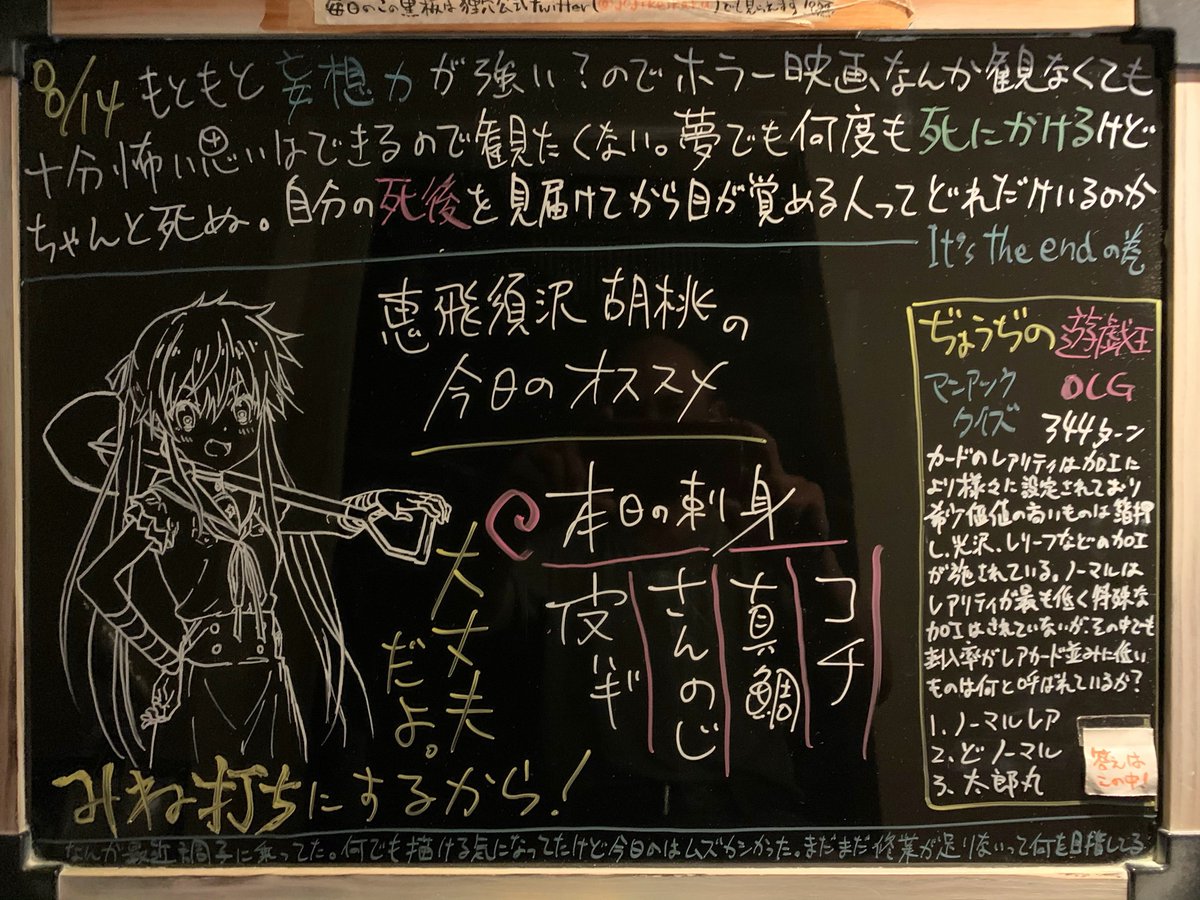 毎日のこの黒板は狸穴公式twitter(
8/14 もともと妄想力が強い?のでホラー映画、なんか観なくても
十分怖い思いはできるので観たくない。夢でも何度も死にかけるけど
ちゃんと死ぬ。自分の死後を見届けてから目が覚める人ってどれだけいるのか
It's the endの巻
恵飛須沢 胡桃の
今日のオススメ
本日の刺身
コチ
真鯛
さんのじ
皮ハギ
大丈夫
だよ。
みね打ちにするから!
ぢょうぢの遊戯王
マニアック OCG
クイズ 344ターン
カードのレアリティは加工に
より様々に設定されており
希少価値の高いものは箔押
し、光沢、レリーフなどの加工
が施されている。ノーマルは
レアリティが最も低く特殊な
加工はされていないが、その中でも
封入率がレアカード並みに低い
ものは何と呼ばれているか?
1. ノーマルレア
2. どノーマル
3. 太郎丸
答えは
この中!
なんか最近調子に乗ってた。何でも描ける気になってたけど今日のはムズカシかった。まだまだ修業が足りないって何を目指してる